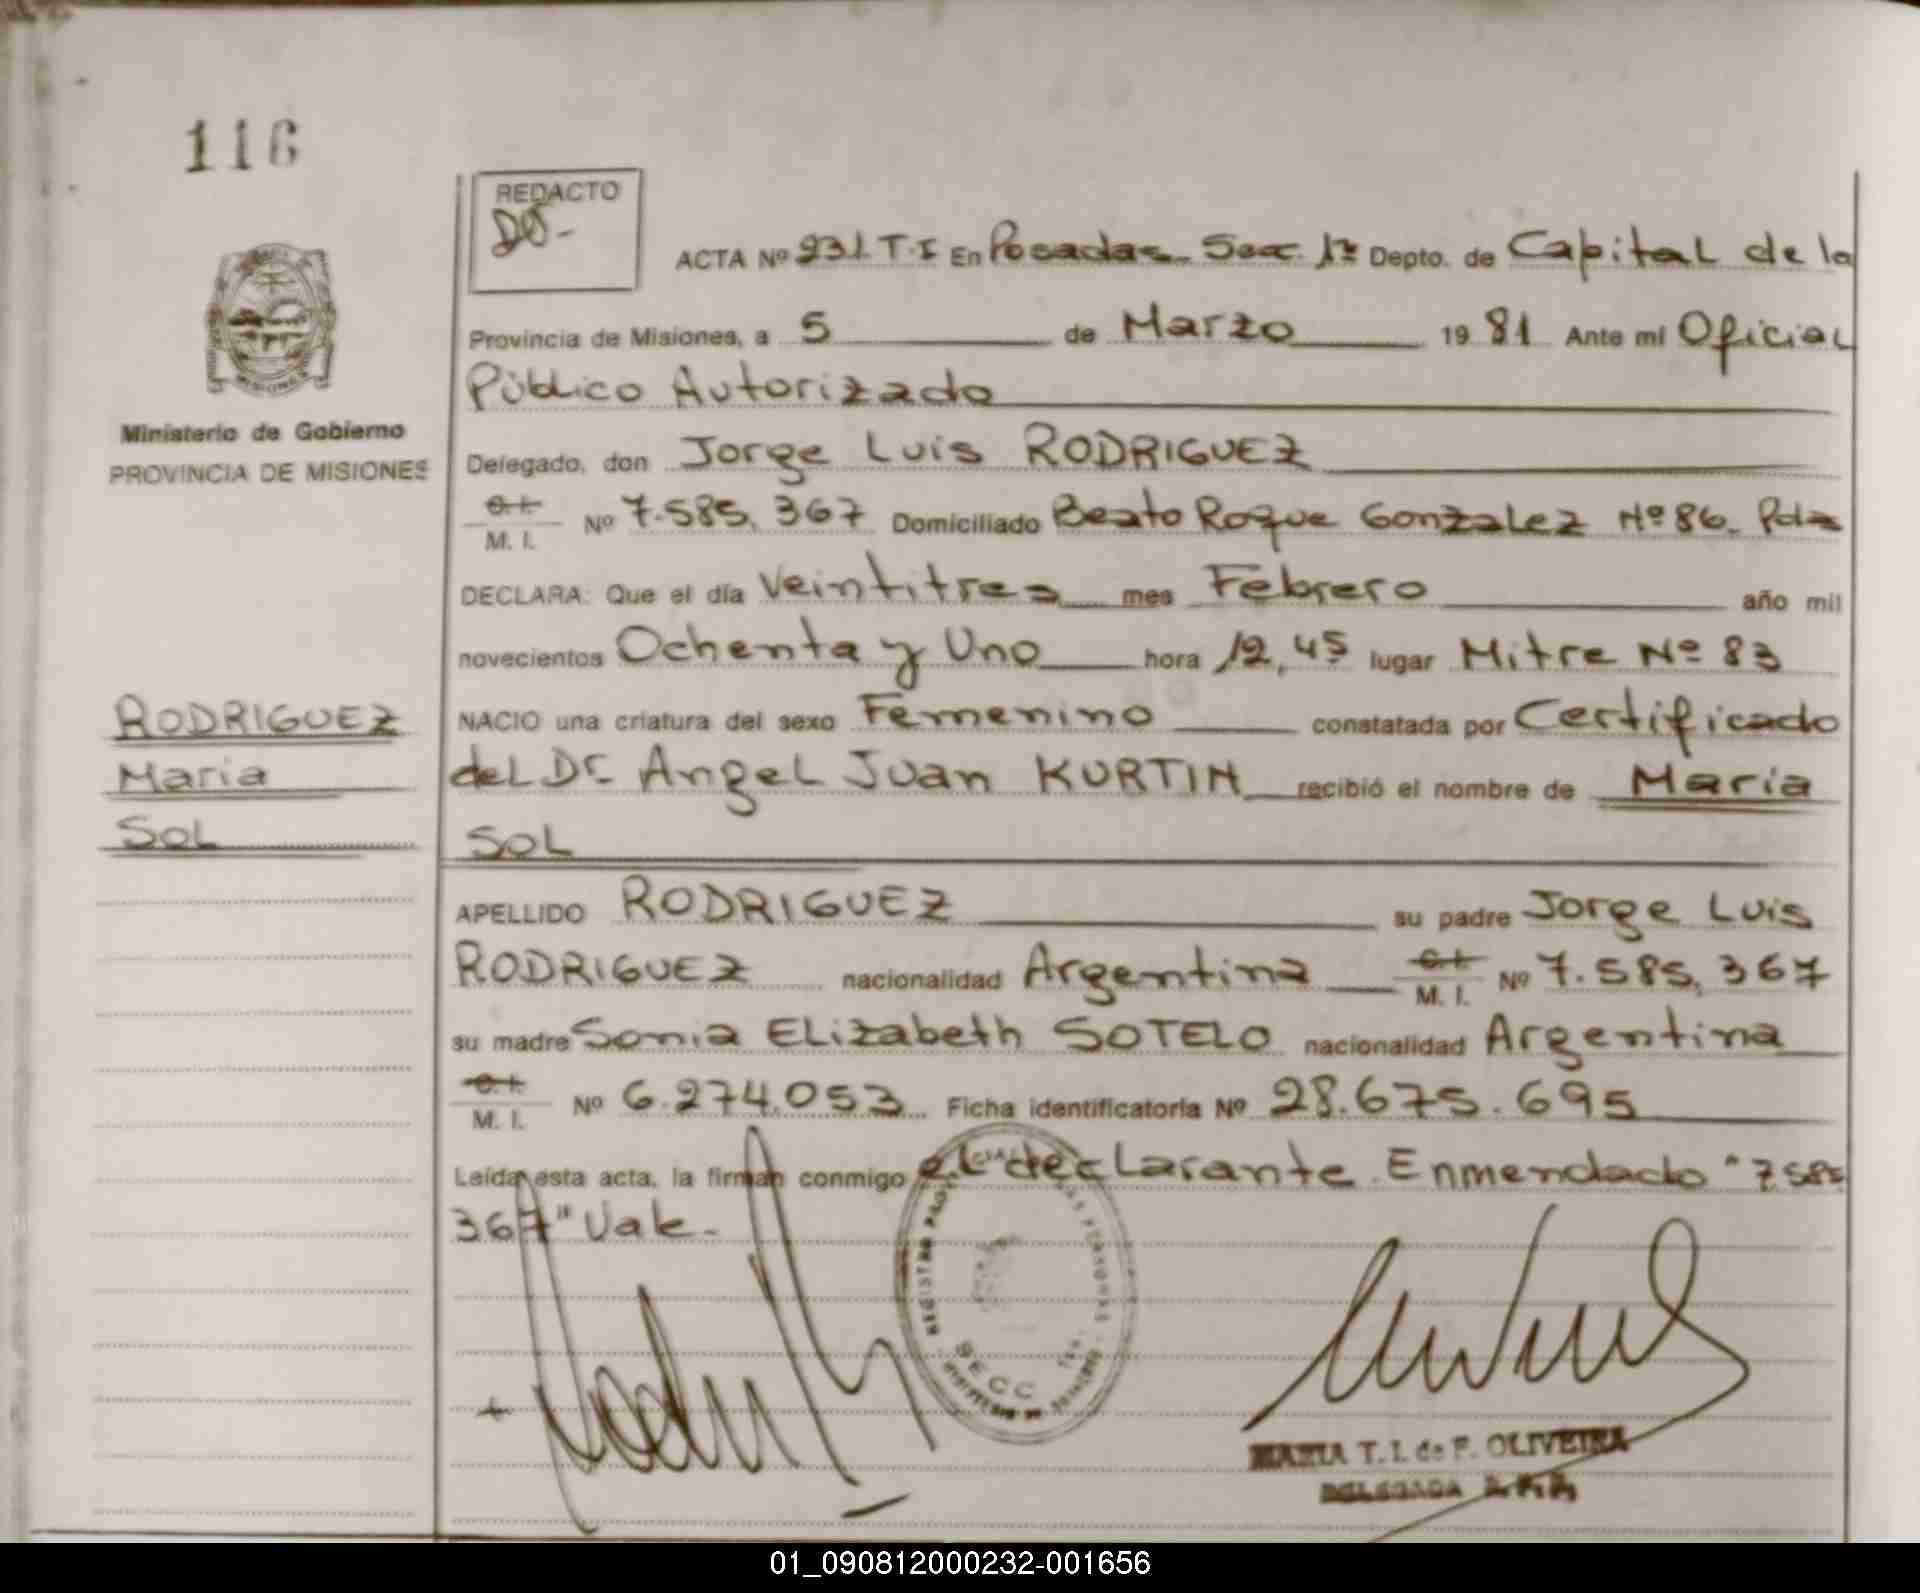 116
REDACTO
ACTA Nº 231 T.I En Posadas Sec. 1ª Depto. de Capital de la
Provincia de Misiones, a 5 de Marzo 1981 Ante mí Oficial
Público Autorizado
Ministerio de Gobierno
PROVINCIA DE MISIONES
Delegado, don Jorge Luis RODRIGUEZ
C. I.
M. I. Nº 7.585.367 Domiciliado Beato Roque Gonzalez Nº 86. Pdas
DECLARA: Que el día Veintitres mes Febrero año mil
novecientos Ochenta y Uno hora 12,45 lugar Mitre Nº 83
RODRIGUEZ
Maria
Sol
NACIO una criatura del sexo Femenino constatada por Certificado
del Dr. Angel Juan KURTIN recibió el nombre de Maria
Sol
APELLIDO RODRIGUEZ su padre Jorge Luis
RODRIGUEZ nacionalidad Argentina C. I. M. I. Nº 7.585.367
su madre Sonia Elizabeth SOTELO nacionalidad Argentina
C. I.
M. I. Nº 6.274.053 Ficha identificatoria Nº 28.675.695
Leída esta acta, la firman conmigo el declarante. Enmendado "7.585
367" Vale.
REGISTRO PERSONAS
SECC
MARIA T. I. de F. OLIVEIRA
DELEGADA
01_090812000232-001656